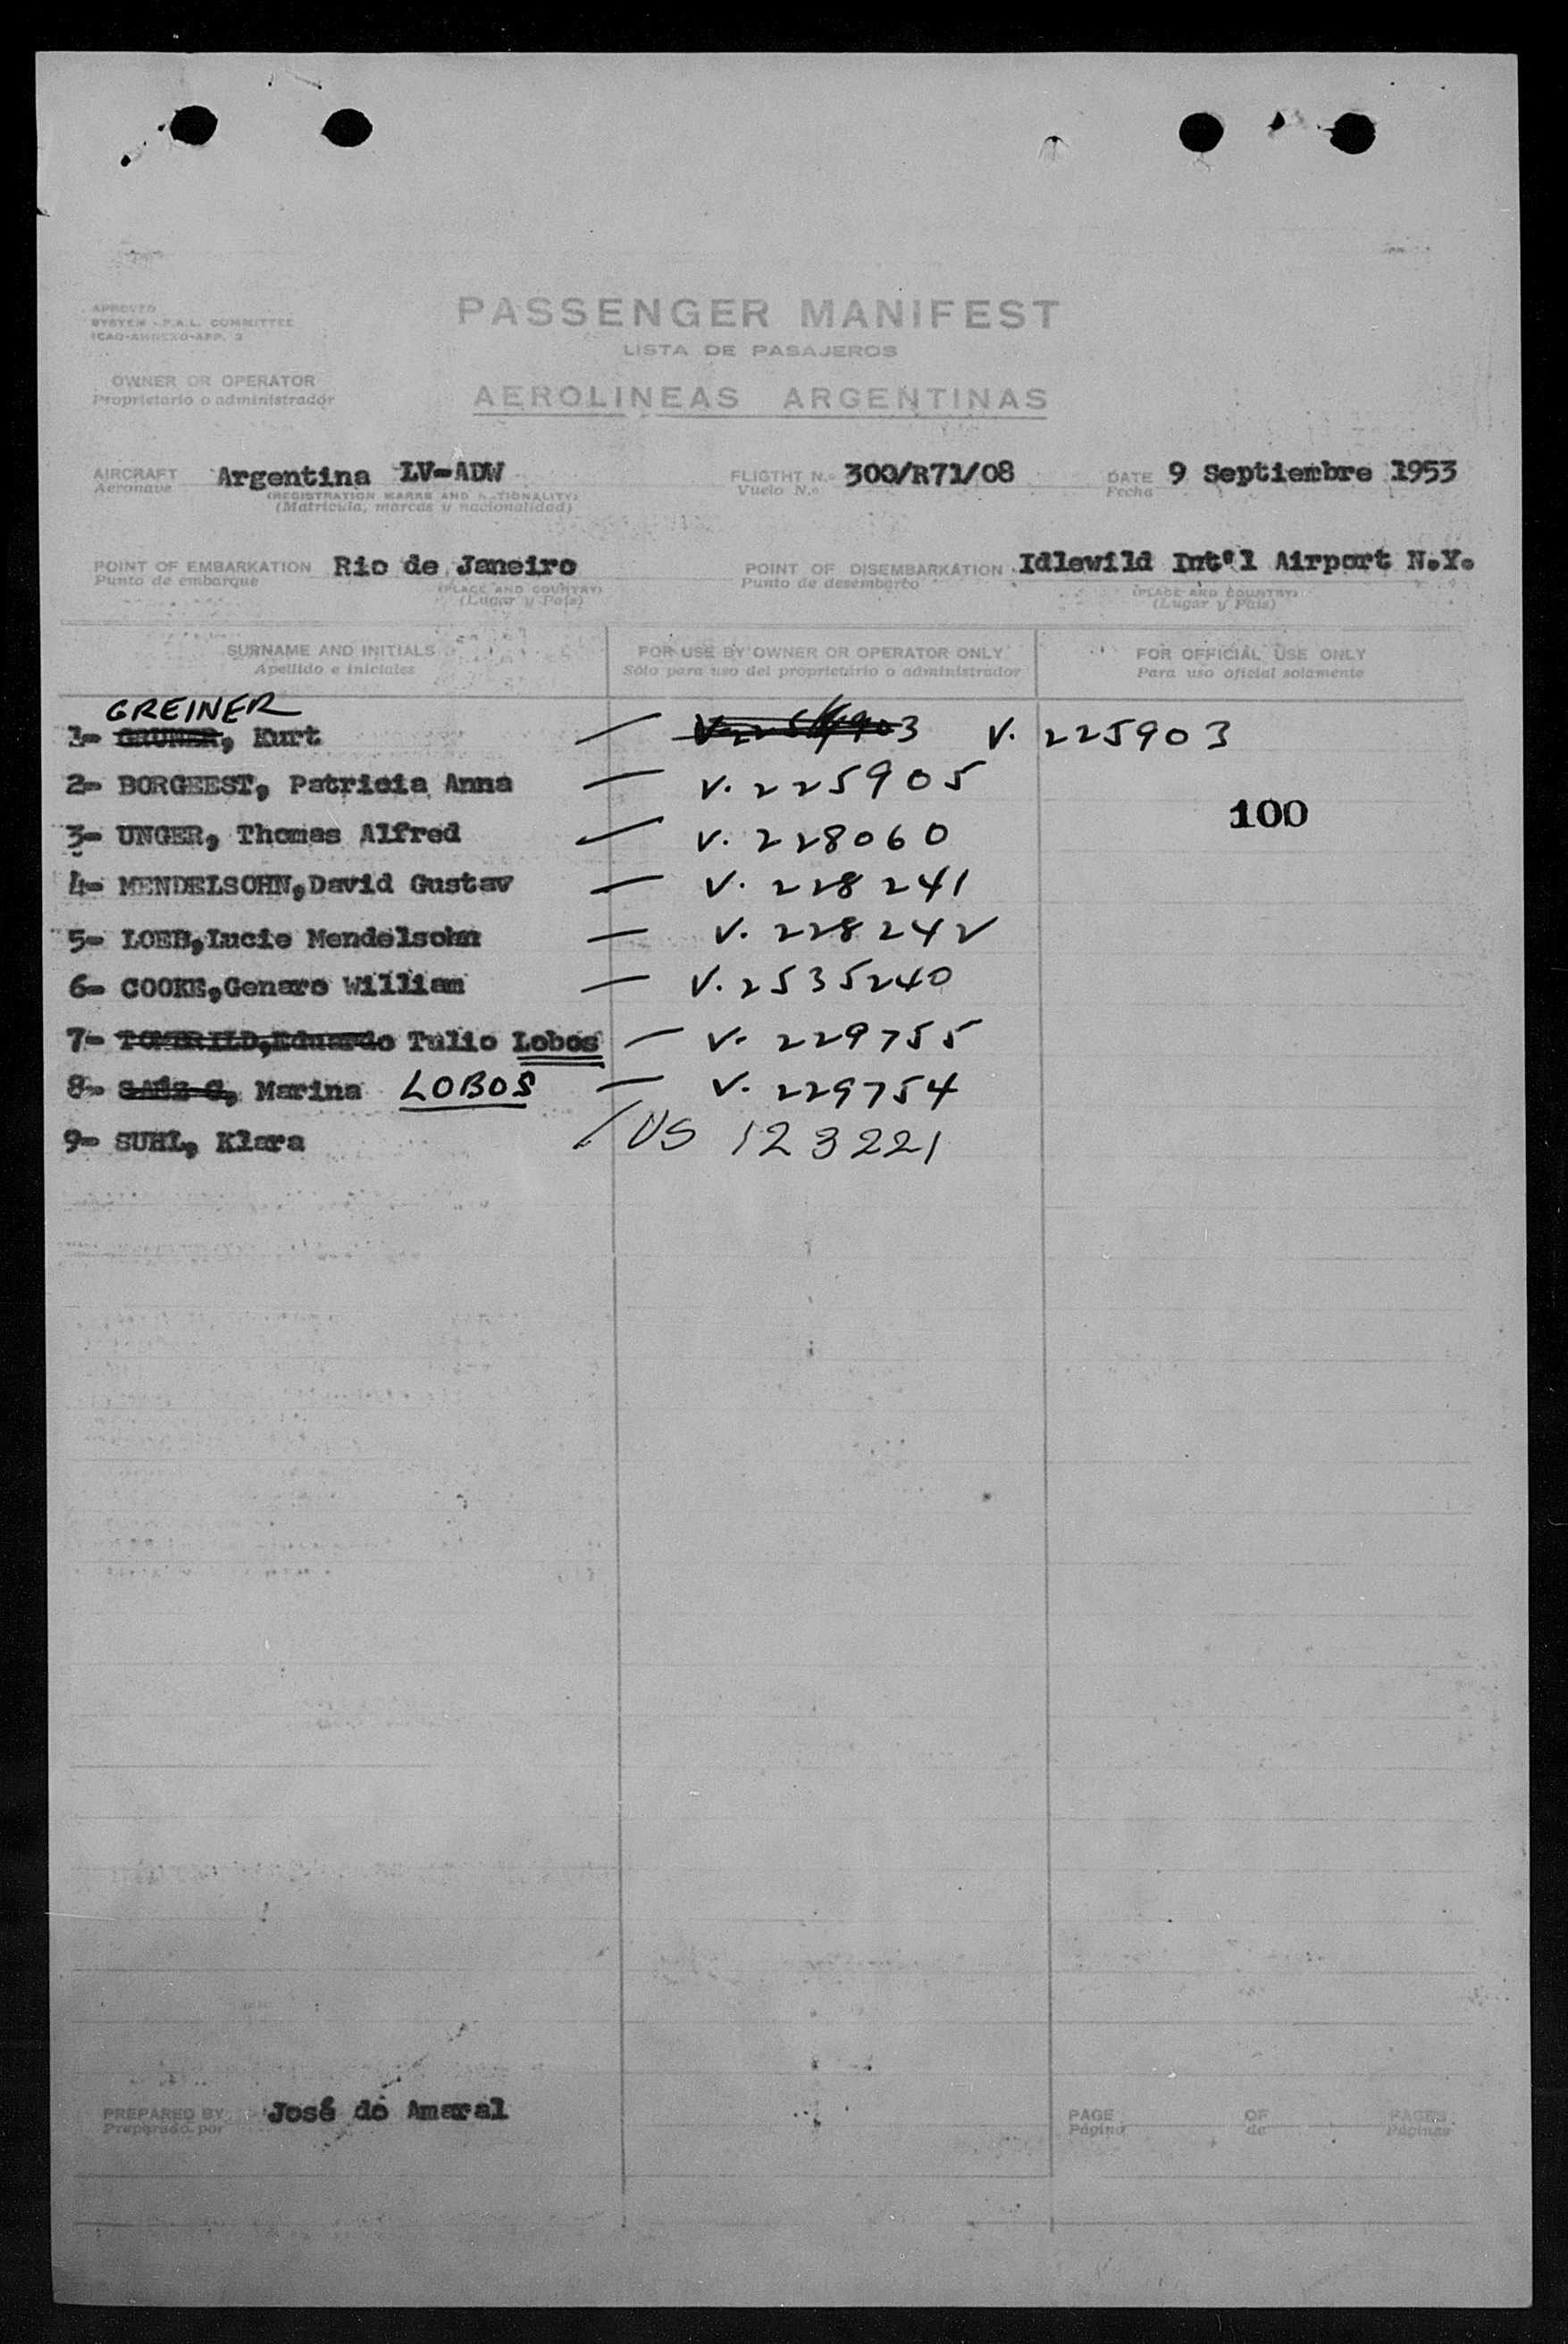 APPROVED
SYSTEM - F.A.L. COMMITTEE
ICAO-ANNEXO-APP. 3
PASSENGER MANIFEST
LISTA DE PASAJEROS
OWNER OR OPERATOR
Proprietario o administrador
AEROLINEAS ARGENTINAS
AIRCRAFT Argentina LV-ADW FLIGTHT N.o 300/R71/08 DATE 9 Septiembre 1953
Aeronave Vuelo N.o Fecha
(REGISTRATION MARKS AND NATIONALITY)
(Matrícula, marcas y nacionalidad)
POINT OF EMBARKATION Rio de Janeiro POINT OF DISEMBARKATION Idlewild Int'l Airport N.Y.
Punto de embarque Punto de desembarco
(PLACE AND COUNTRY) (PLACE AND COUNTRY)
(Lugar y País) (Lugar y País)
SURNAME AND INITIALS FOR USE BY OWNER OR OPERATOR ONLY FOR OFFICIAL USE ONLY
Apellido e iniciales Sólo para uso del proprietario o administrador Para uso oficial solamente
GREINER
1- , Kurt — V. 225903
2- BORGEEST, Patricia Anna — V. 225905
100
3- UNGER, Thomas Alfred — V. 228060
4- MENDELSOHN, David Gustav — V. 228241
5- LOEB, Lucie Mendelsohn — V. 228242
6- COOKE, Genaro William — V. 2535240
7- Eduardo Tulio Lobos — V. 229755
8- Marina LOBOS — V. 229754
9- SUHL, Klara / US 123221
PREPARED BY José do Amaral PAGE OF PAGES
Preparado por Página de Páginas